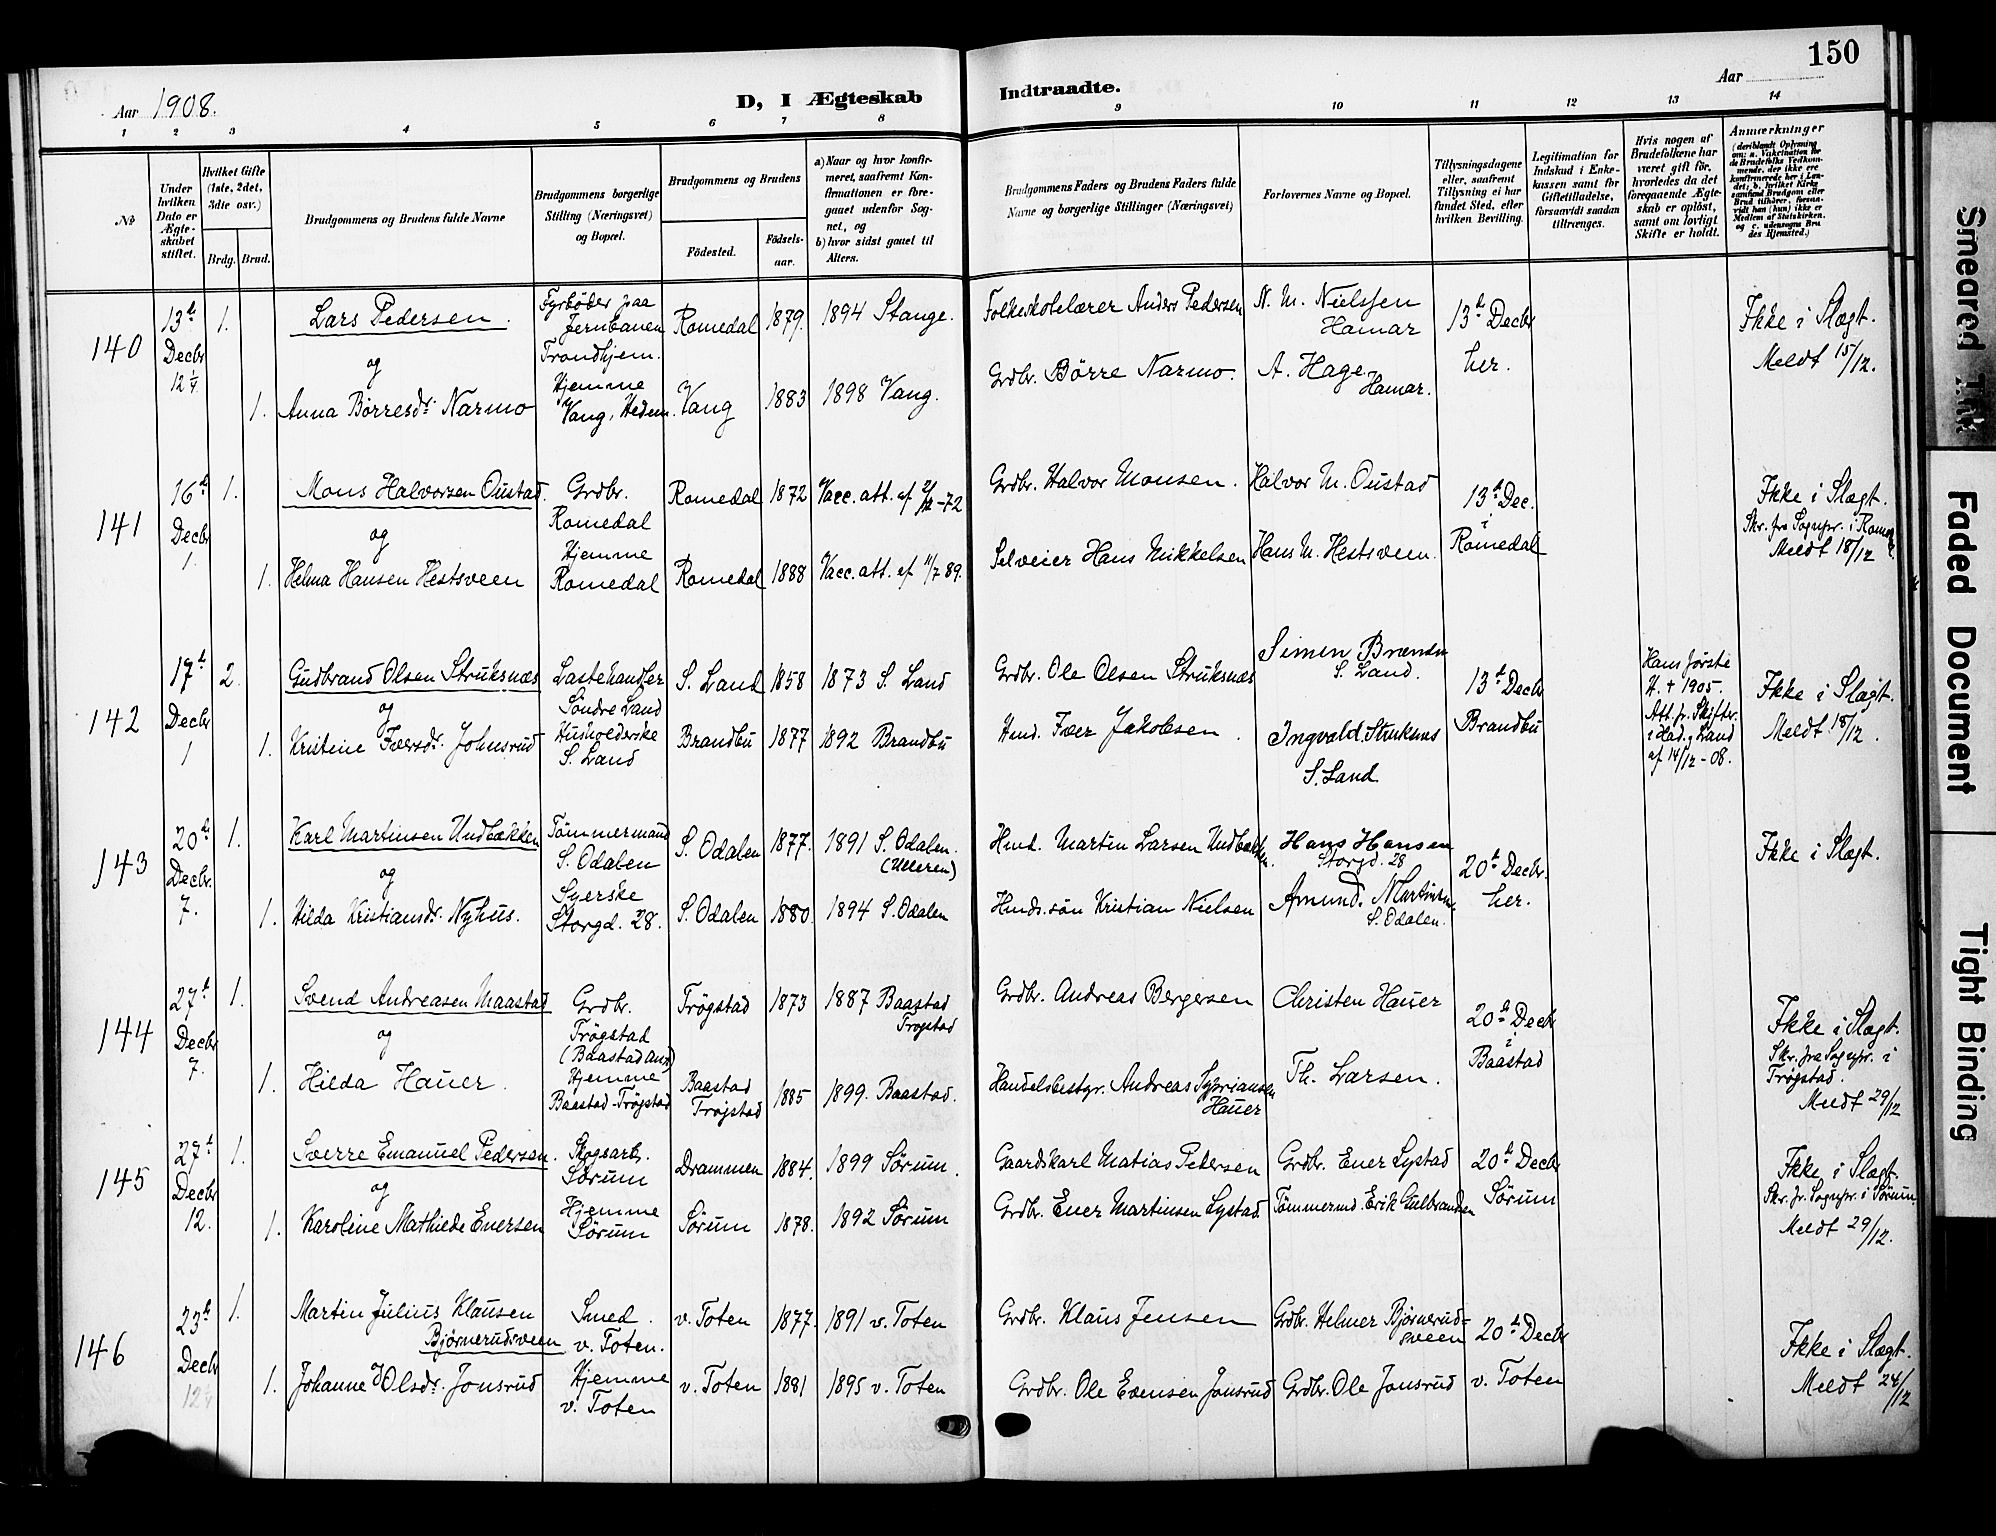 150
Aar 1908.
D, I Ægteskab Indtraadte.
Aar
1 2 3 4 5 6 7 8 9 10 11 12 13 14
No
Under hvilken Dato er Ægteskabet stiftet.
Hvilket Gifte (1ste, 2det, 3die osv.)
Brdg. Brud.
Brudgommens og Brudens fulde Navne
Brudgommens borgerlige Stilling (Næringsvei) og Bopæl.
Brudgommens og Brudens
Fødested. Fødselsaar.
a) Naar og hvor konfirmeret, saafremt Konfirmationen er foregaaet udenfor Sognet, og
b) hvor sidst gaaet til Alters.
Brudgommens Faders og Brudens Faders fulde Navne og borgerlige Stillinger (Næringsvei)
Forlovernes Navne og Bopæl.
Tillysningsdagene eller, saafremt Tillysning ei har fundet Sted, efter hvilken Bevilling.
Legitimation for Indskud i Enkekassen samt for Giftetilladelse, forsaavidt saadan tiltrænges.
Hvis nogen af Brudefolkene har været gift før, hvorledes da det foregaaende Ægteskab er opløst, samt om lovligt Skifte er holdt.
Anmærkninger (deriblandt Oplysning om: a. Vakcination for de Brudefolks Vedkommende, der ikke ere konfirmerede her i Landet; b. hvilket Kirkesamfund Brudgom eller Brud tilhører, forsaavidt han (hun) ikke er Medlem af Statskirken, og c. udensogns Brudes Hjemsted.)
140
13de Decbr 12 1/4
1. Lars Pedersen. Fyrbøder paa Jernbanen Trondhjem. Romedal 1879. 1894 Stange. Folkeskolelærer Anders Pedersen N. M. Nielsen Hamar 13de Decbr her. Ikke i Slægt. Meldt 15/12.
og
1. Anna Børresdr. Narmo Hjemme Vang, Hedem. Vang 1883 1898 Vang. Grdbr. Børre Narmo. A. Hage Hamar.
141
16de Decbr 1.
1. Mons Halvorsen Oustad. Grdbr. Romedal Romedal 1872 Vacc. att. af -72 Grdbr. Halvor Monsen. Halvor M. Oustad 13de Dec. i Romedal Ikke i Slægt. Skr. fra Sognepr. i Romedal. Meldt 18/12
og
1. Helma Hansen Hestsveen Hjemme Romedal Romedal 1888 Vacc. att. af 11/7 89. Selveier Hans Mikkelsen Hans M. Hestsveen.
142
17de Decbr 1
2. Gudbrand Olsen Struksnæs Lastehandler Søndre Land S. Land 1858 1873 S. Land Grdbr. Ole Olsen Struksnæs Simen Brænden S. Land. 13de Decbr Brandbu Hans første H. † 1905. Att. fr. Skifter. i Had. og Land af 14/12 - 08. Ikke i Slægt. Meldt 18/12.
og
1. Kristine Faersdr. Johnsrud Husholderske S. Land Brandbu 1877 1892 Brandbu Hmd. Faer Jakobsen. Ingvald Struknæs S. Land
143
20de Decbr. 7.
1. Karl Martinsen Undbækken Tømmermand S. Odalen S. Odalen 1877. 1891 S. Odalen. (Ulleren) Hmd. Martin Larsen Undbækken. Hans Hansen Storgd. 28 20de Decbr. her. Ikke i Slægt.
og
1. Hilda Kristiansdr. Nyhus. Syerske Storgd. 28. S. Odalen 1880. 1894 S. Odalen Hmds.søn Kristian Nielsen Amund. Martinsen. S. Odalen.
144
27de Decbr 7.
1. Svend Andreasen Maastad Grdbr. Trøgstad (Baastad anx) Trøgstad 1873 1887 Baastad Trøgstad Grdbr. Andreas Bergersen Christen Hauer 20de Decbr i Baastad Ikke i Slægt. Skr. fra Sognepr. i Trøgstad. Meldt 29/12
og
1. Hilda Hauer. Hjemme Baastad-Trøgstad Baastad Trøgstad 1885 1899. Baastad. Handelsbestyr. Andreas Sypriansen Hauer Th. Larsen.
145
27de Decbr 12.
1. Sverre Emanuel Pedersen. Skogsarb. Sørum Drammen 1884. 1899 Sørum. Gaardskarl Matias Pedersen Grdbr. Ener Lystad 20de Decbr Sørum Ikke i Slægt. Skr. fr. Sognepr. i Sørum. Meldt 29/12.
og
1. Karoline Mathilde Enersen Hjemme Sørum Sørum 1878. 1892 Sørum Grdbr. Ener Martinsen Lystad Tømmermd. Erik Gulbrandsen
146
23de Decbr 12 1/4
1. Martin Julius Klausen Bjørnerudsveen Smed. v. Toten. v. Toten 1877. 1891 v. Toten Grdbr. Klaus Jensen Grdbr. Helmer Bjørnerudsveen 20de Decbr v. Toten Ikke i Slægt. Meldt 24/12
og
1. Johanne Olsdr. Jonsrud Hjemme v. Toten v. Toten 1881 1895 v. Toten Grdbr. Ole Evensen Jonsrud Grdbr. Ole Jonsrud
Smeared Ink
Faded Document
Tight Binding